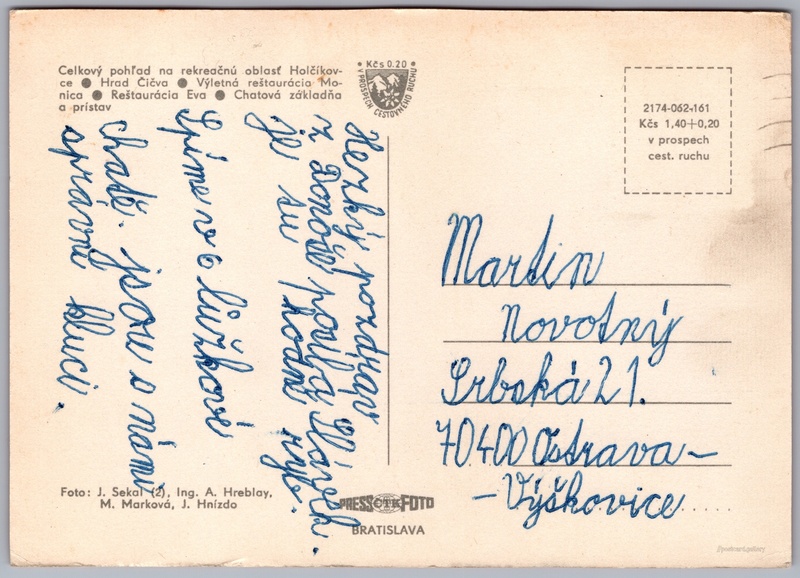 Celkový pohľad na rekreačnú oblasť Holčíkov-
ce ● Hrad Čičva ● Výletná reštaurácia Mo-
nica ● Reštaurácia Eva ● Chatová základňa
a prístav
Kčs 0.20
V PROSPECH CESTOVNÉHO RUCHU
2174-062-161
Kčs 1,40+0,20
v prospech
cest. ruchu
Hezký pozdrav
z Domoše posílá Slávek.
je tu hodně ryb.
Spíme v 6 lůžkové
chatě. jsou s námi
správní kluci.
Martin
Novotný
Srbská 21.
70400 Ostrava-
-Výškovice
Foto: J. Sekal (2), Ing. A. Hreblay,
M. Marková, J. Hnízdo
PRESS ČTK FOTO
BRATISLAVA